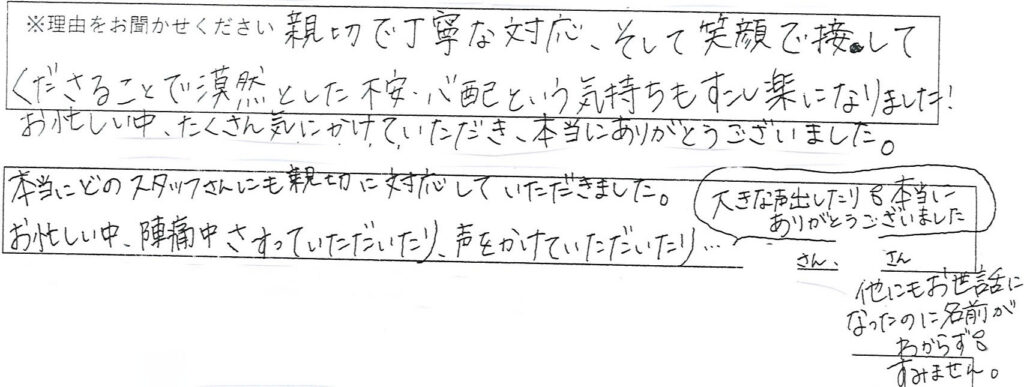 ※理由をお聞かせください 親切で丁寧な対応、そして笑顔で接して
くださることで漠然とした不安・心配という気持ちもすこし楽になりました!
お忙しい中、たくさん気にかけていただき、本当にありがとうございました。
本当にどのスタッフさんにも親切に対応していただきました。
お忙しい中、陣痛中さすっていただいたり、声をかけていただいたり…
大きな声出したりも本当に
ありがとうございました
さん、 さん
他にもお世話に
なったのに名前が
わからず
すみません。